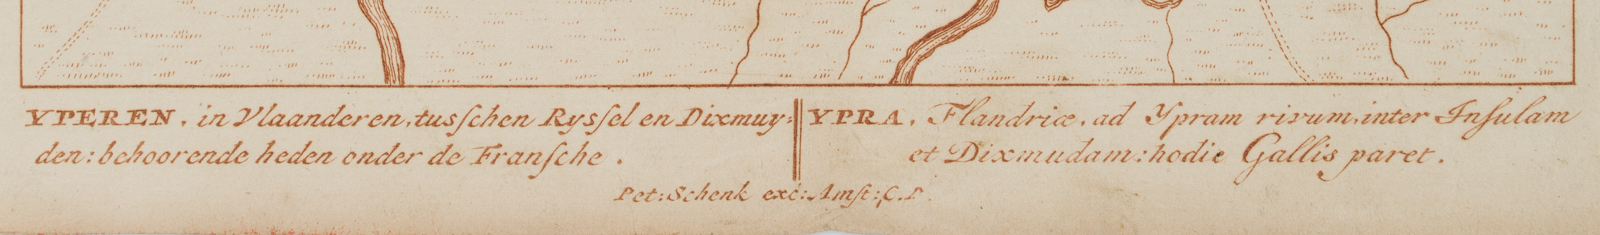 YPEREN, in Vlaanderen, tusſchen Rysſel en Dixmuy-
den: behoorende heden onder de Franſche.
YPRA, Flandriæ, ad Ypram rivum, inter Inſulam
et Dixmudam: hodie Gallis paret.
Pet: Schenk exc: Amſt: C.P.